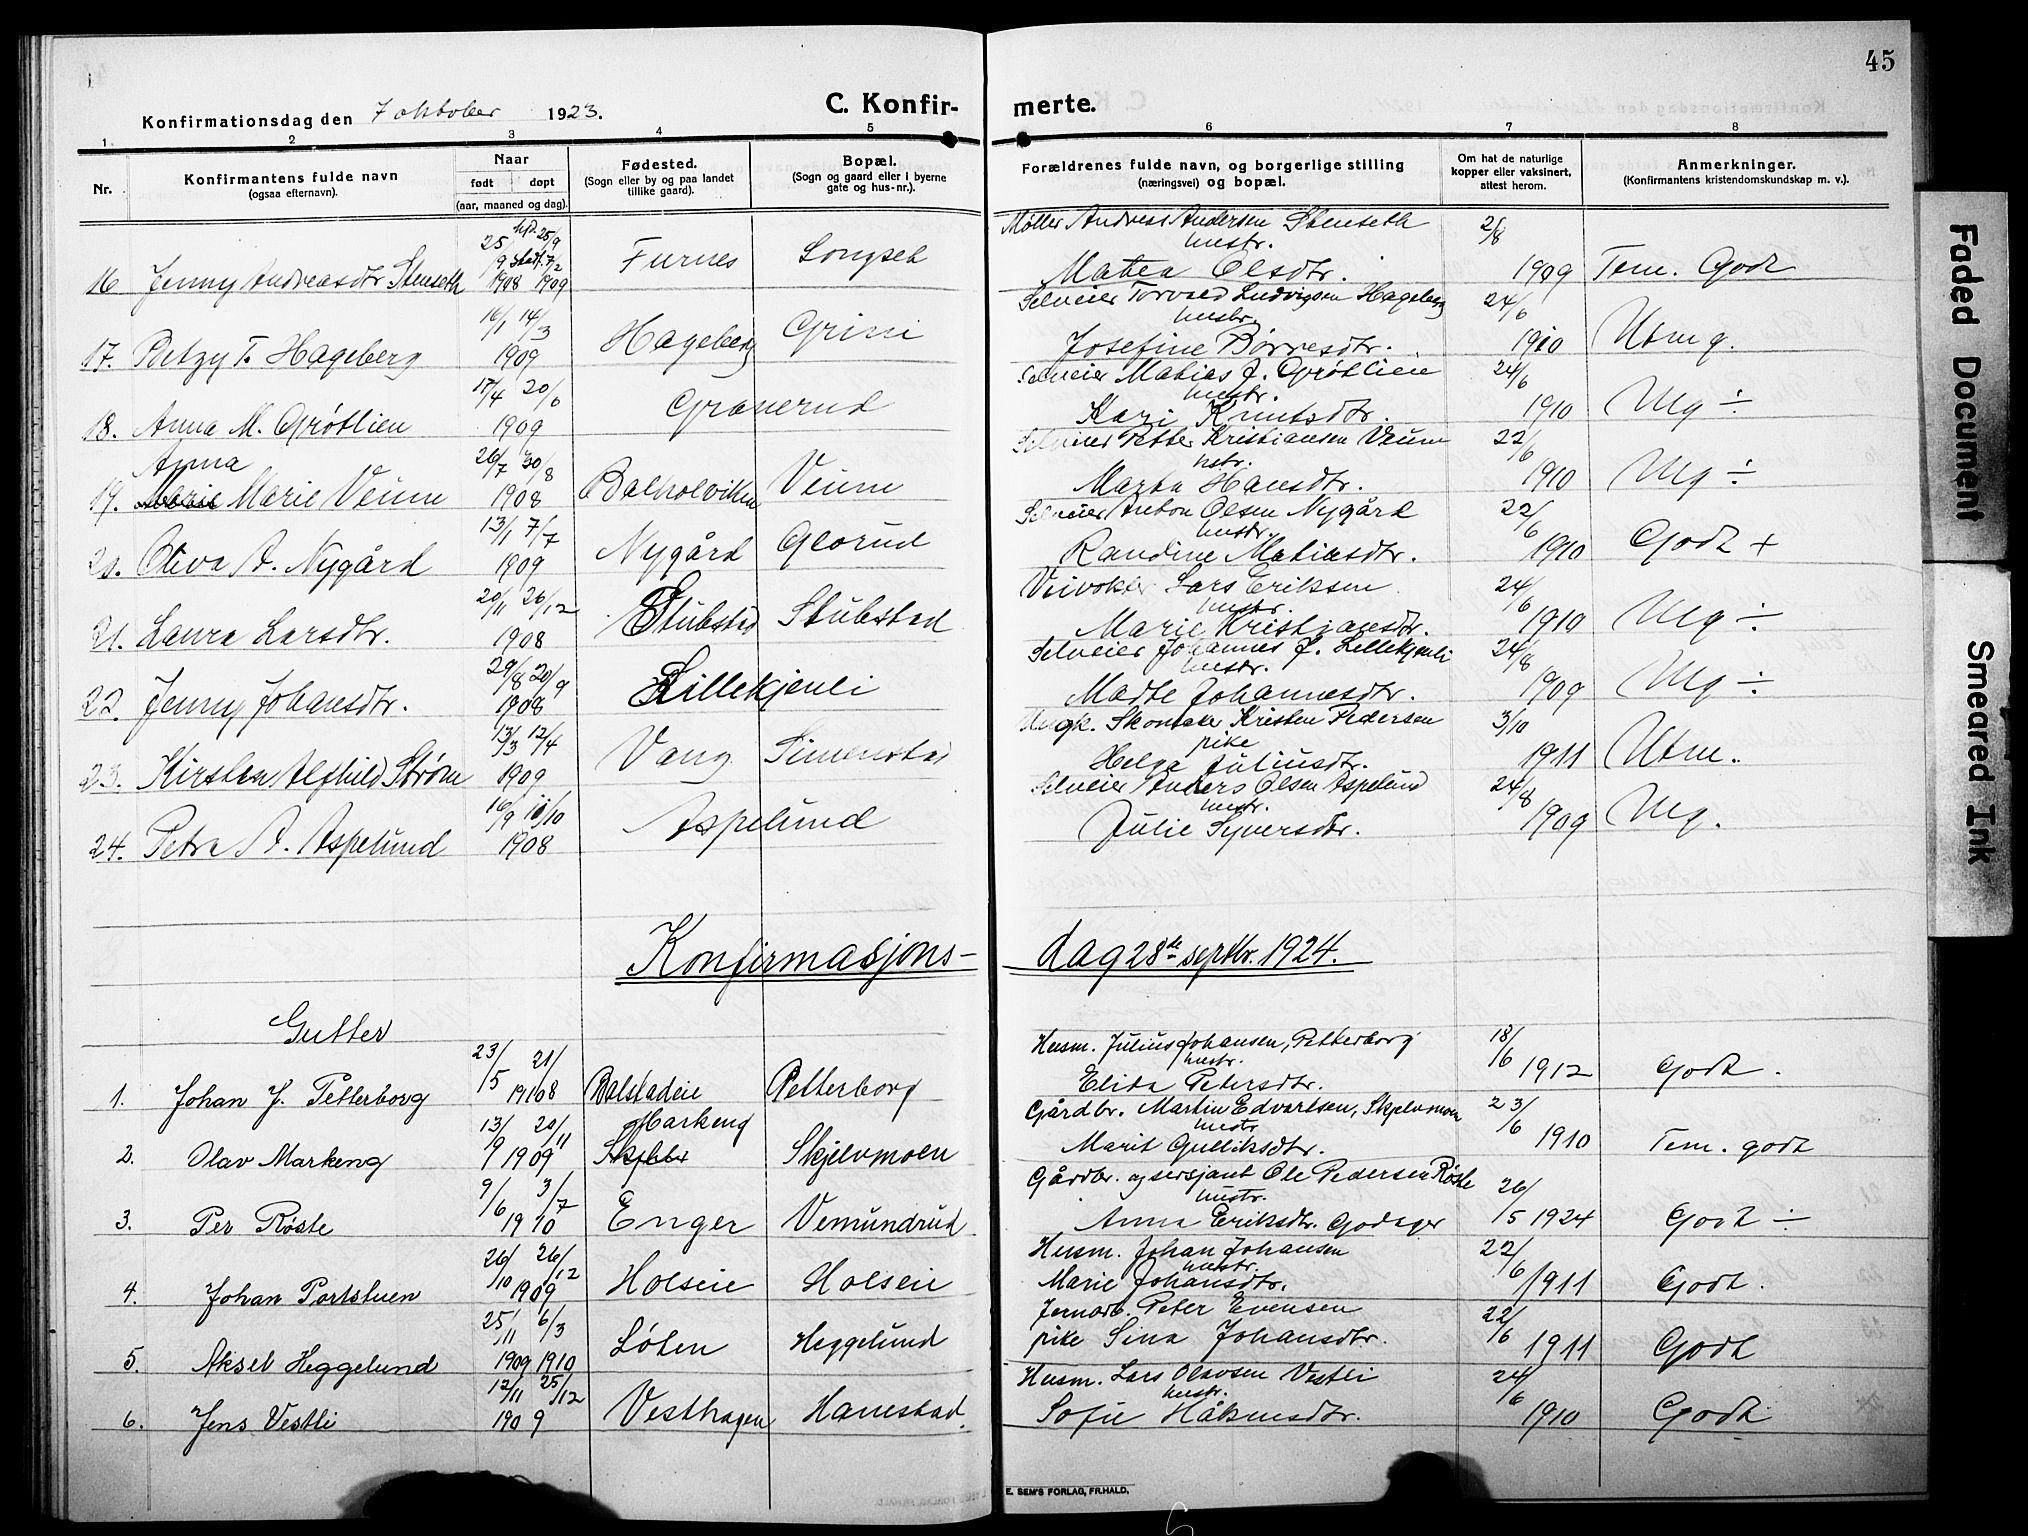 45
Konfirmationsdag den 7 oktober 1923.
C. Konfir- merte.
1 2 3 4 5 6 7 8
Nr.
Konfirmantens fulde navn
(ogsaa efternavn).
Naar
født døpt
(aar, maaned og dag).
Fødested.
(Sogn eller by og paa landet
tillike gaard).
Bopæl.
(Sogn og gaard eller i byerne
gate og hus-nr.).
Forældrenes fulde navn, og borgerlige stilling
(næringsvei) og bopæl.
Om hat de naturlige
kopper eller vaksinert,
attest herom.
Anmerkninger.
(Konfirmantens kristendomskundskap m. v.).
16 Jenny Andreasdtr Stenseth 25/9 1908 hjd. 25/9 stadf. 7/2 1909 Furnes Møller Andreas Andersen Stenseth
hustr.
Matea Olsdtr. 2/8 1909 Tem. Godt
17. Betzy T. Hageberg 16/1 14/3 1909 Hageberg Grini Selveier Torvald Ludvigsen Hageberg
hustr.
Josefine Børresdtr. 24/6 1910 Utm g.
18. Anna M. Grøtlien 17/4 20/6 1909 Granerud Selveier Matias J. Grøtlien
hustr.
Kari Knutsdtr. 24/6 1910 Mg ÷
19. Anna Marie Veum 26/7 30/8 1908 Balholvikn Veum Selveier Petter Kristiansen Veum
hstr.
Marta Hansdtr. 22/6 1910 Mg ÷
20. Oliva A. Nygård 13/1 7/7 1909 Nygård Glorud Selveier Anton Olsen Nygård
hustr.
Randine Matiasdtr. 22/6 1910 Godt +
21. Laura Larsdtr. 20/11 26/12 1908 Stubstad Stubstad Veivokter Lars Eriksen
hustr.
Marie Kristiansdtr. 24/6 1910 Mg ÷
22. Jenny Johansdtr. 29/8 20/9 1908 Lillekjenli Selveier Johannes J. Lillekjenli
hustr.
Marte Johannesdtr. 24/8 1909 Mg ÷
23. Kirsten Alfhild Strøm 13/3 12/4 1909 Vang Simenstad Ungk. Skomaker Kristen Pedersen
pike
Helga Juliusdtr. 3/10 1911 Utm.
24. Petra A. Aspelund 16/9 10/10 1908 Aspelund Selveier Anders Olsen Aspelund
hustr.
Julie Syversdtr. 24/8 1909 Mg.
Konfirmasjons- dag 28de septbr. 1924.
Gutter
1. Johan J. Petterborg 23/5 21/ 1908 Balstadeie Petterborg Husm. Julius Johansen, Petterborg
hustr.
Elida Petersdtr. 18/6 1912 Godt.
2. Olav Markeng 13/9 20/11 1909 Markeng Skjelvmoen Gårdbr. Martin Edvartsen, Skjelvmoen
hustr.
Marit Gulliksdtr. 23/6 1910 Tem. godt
3. Per Røste 9/6 3/7 1910 Enger Vemundrud Gårdbr. og sersjant Ole Pedersen Røste
hustr.
Anna Eriksdtr. Godager 26/5 1924 Godt ÷
4. Johan Portstuen 26/10 26/12 1909 Holseie Holseie Husm. Johan Johansen
hustr.
Marie Johansdtr. 22/6 1911 Godt.
5. Aksel Heggelund 25/11 6/3 1909 1910 Løten Heggelund Jernarb. Peter Evensen
pike Sina Johansdtr. 22/6 1911 Godt
6. Jens Vestli 12/11 25/12 1909 Vesthagen Hanestad. Husm. Lars Olavsen Vestli
hustr.
Sofie Håkensdtr. 24/6 1910 Godt
E. SEM'S FORLAG, FR.HALD.
Faded Document
Smeared Ink